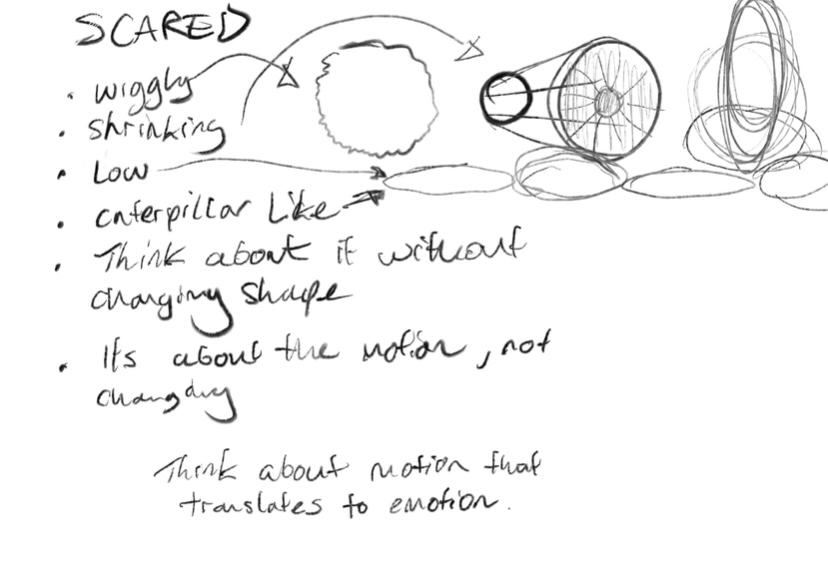 SCARED
• wiggly
• shrinking
• Low
• caterpillar Like
• Think about it without
changing shape
• Its about the motion, not
Think about motion that
translates to emotion.